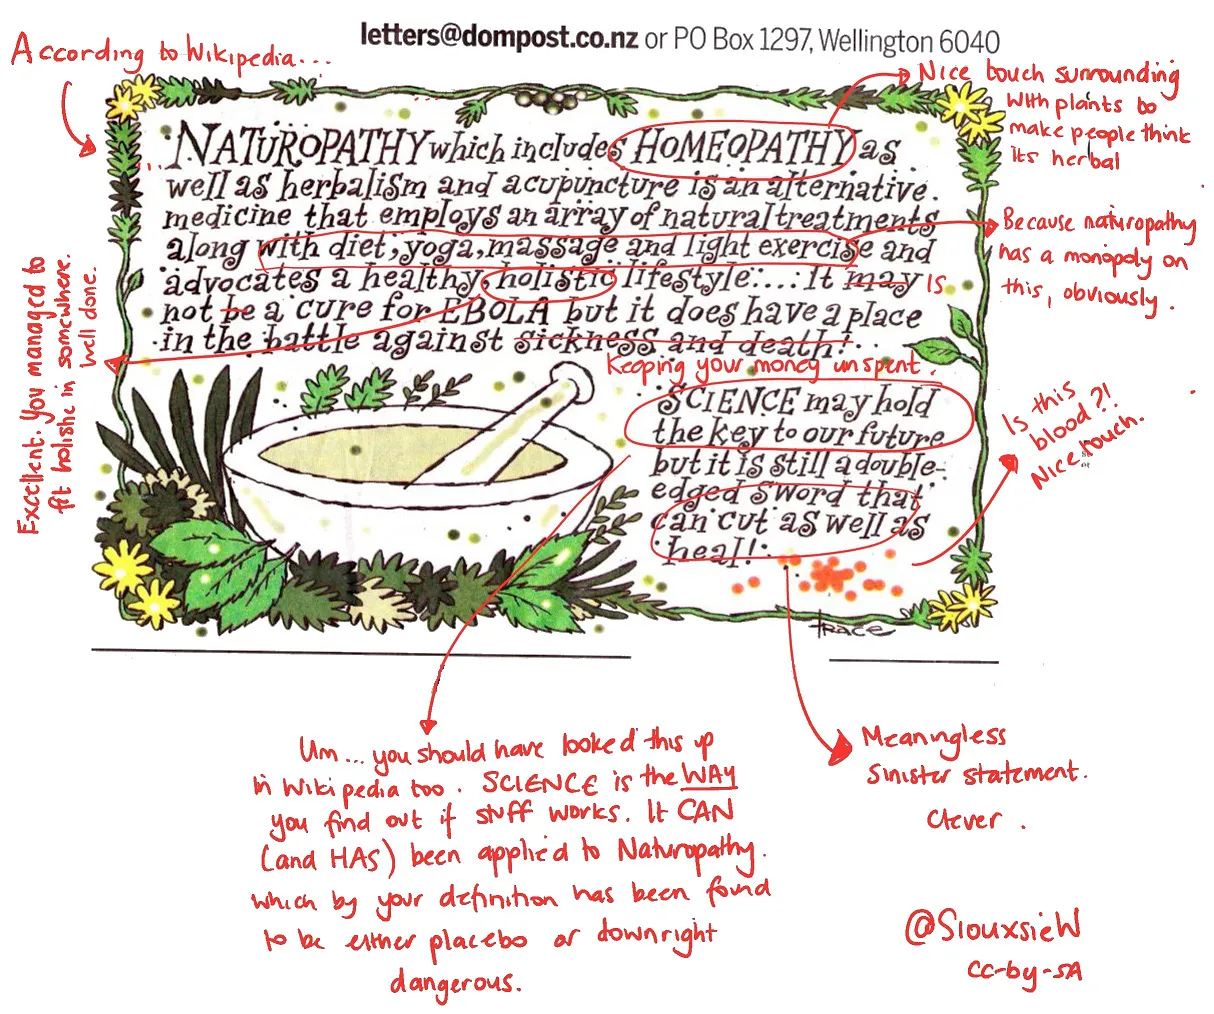 letters@dompost.co.nz or PO Box 1297, Wellington 6040
According to Wikipedia...
Nice touch surrounding
with plants to
make people think
its herbal
NATUROPATHY which includes HOMEOPATHY as
well as herbalism and acupuncture is an alternative
medicine that employs an array of natural treatments
along with diet, yoga, massage and light exercise and
advocates a healthy, holistic lifestyle.... It may is
not be a cure for EBOLA but it does have a place
in the battle against sickness and death!
Keeping your money unspent.
Because naturopathy
has a monopoly on
this, obviously.
Excellent. You managed to
fit holistic in somewhere.
Well done.
SCIENCE may hold
the key to our future
but it is still a double-
edged sword that
can cut as well as
heal!
Is this
blood?!
Nice touch.
Trace
Um... you should have looked this up
in Wikipedia too. SCIENCE is the WAY
you find out if stuff works. It CAN
(and HAS) been applied to Naturopathy.
which by your definition has been found
to be either placebo or downright
dangerous.
Meaningless
sinister statement.
Clever.
@SiouxsieW
cc-by-SA